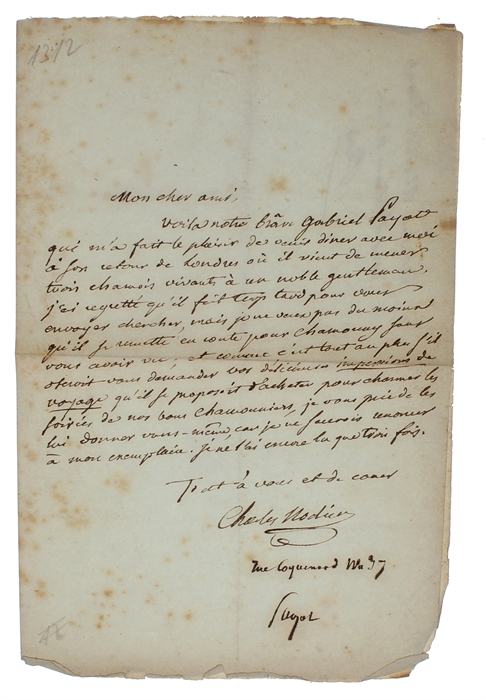 1312
Mon cher ami,
Voila notre brave Gabriel Payot
qui m'a fait le plaisir de venir diner avec moi
à son retour de Londres où il vient de mener
trois chamois vivants à un noble gentleman.
j'ai regretté qu'il fût trop tard pour vous
envoyer chercher, mais je ne veux pas du moins
qu'il se remette en route pour Chamouny sans
vous avoir vu, et comme c'est tout au plus s'il
oseroit vous demander vos délicieuses impressions de
voyage qu'il se proposoit d'acheter pour charmer les
soirées de nos bons Chamouniers, je vous prie de les
lui donner vous-même, car je ne saurois renoncer
à mon exemplaire. je ne l'ai encore lu que trois fois.
Tout à vous et de cœur
Charles Nodier
rue Coquenard No 37
Payot